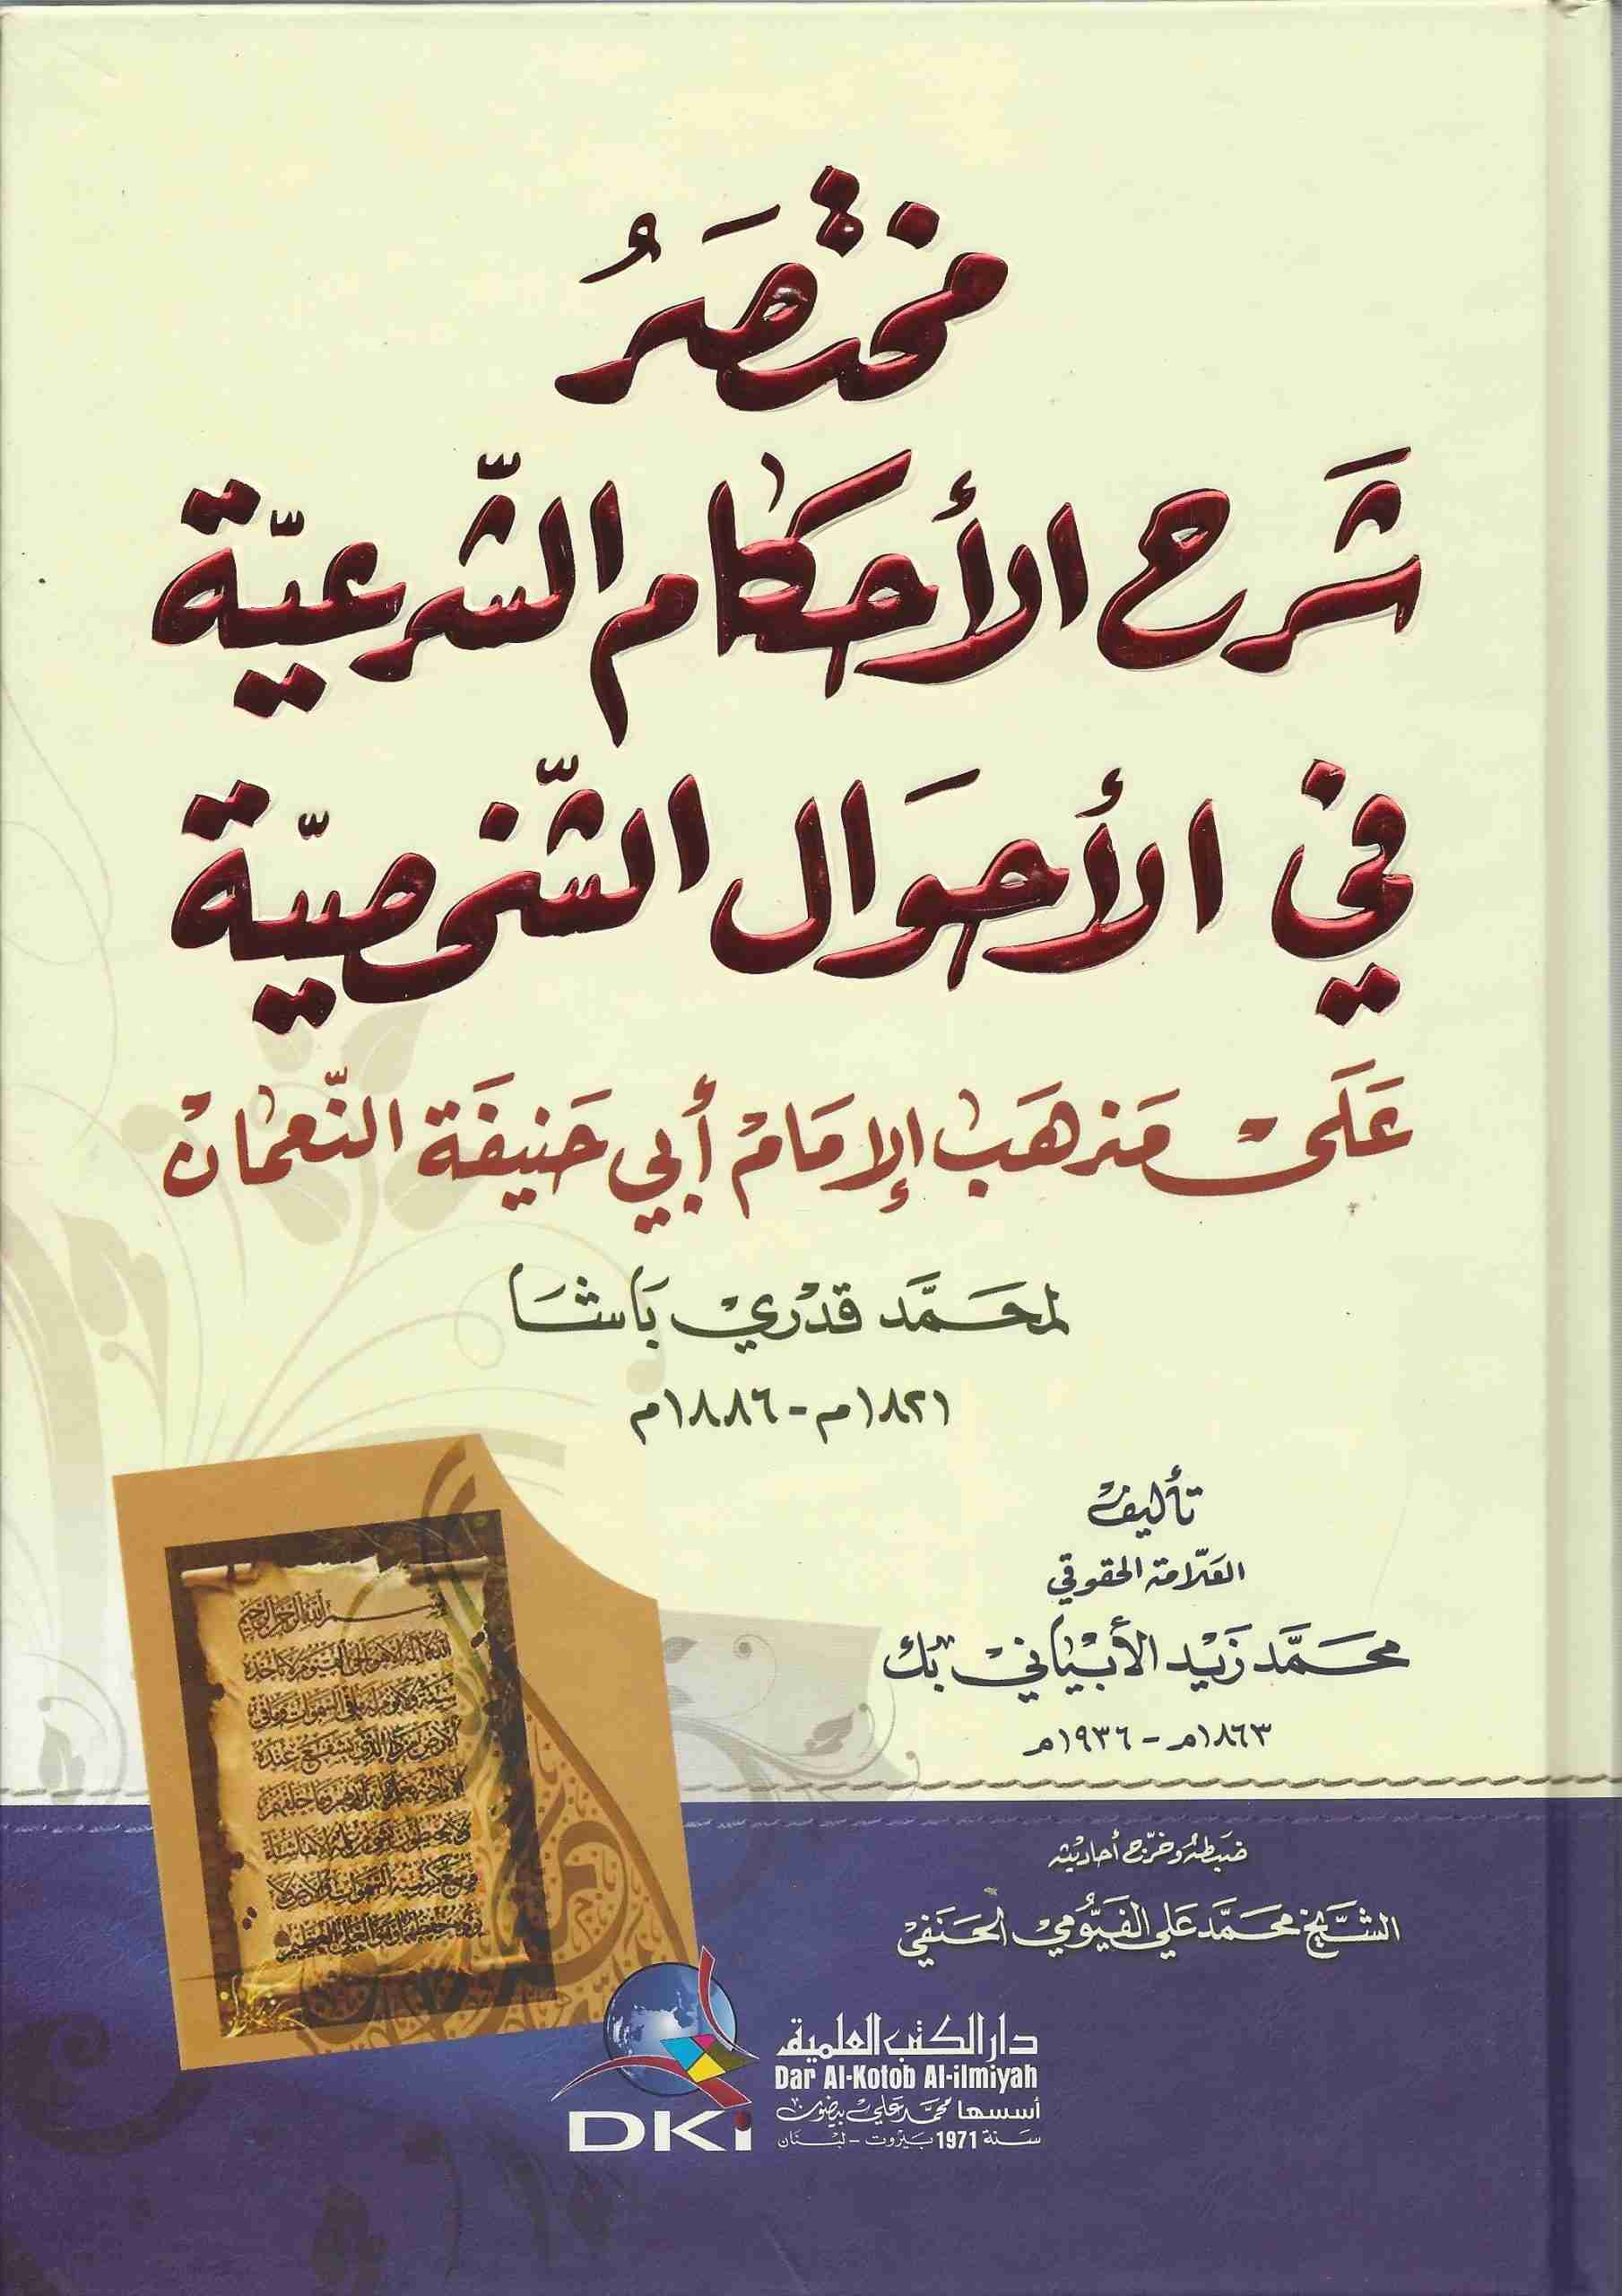 مختصَرُ
شَرح الأحكام الشّرعيّة
في الأحوَال الشّخصيّة
عَلَى مَذهَب الإمَام أبي حَنيفَة النّعمَان
لمحَمَّد قدْري بَاشَا
١٨٢١م - ١٨٨٦م
تأليف
العَلّامة الحقوقي
محَمَّد زَيْد الأبْيَاني بك
١٨٦٣م - ١٩٣٦م
ضبَطهُ وخرّج أحاديثه
الشَّيْخ محَمَّد عَلي الفَيُّومي الحَنَفي
بسم الله الرحمن الرحيم
دار الكتب العلمية
Dar Al-Kotob Al-ilmiyah
أسسها محمّد عَلي بيضون
سَنة 1971 بَيْروت - لبْنان
DKi